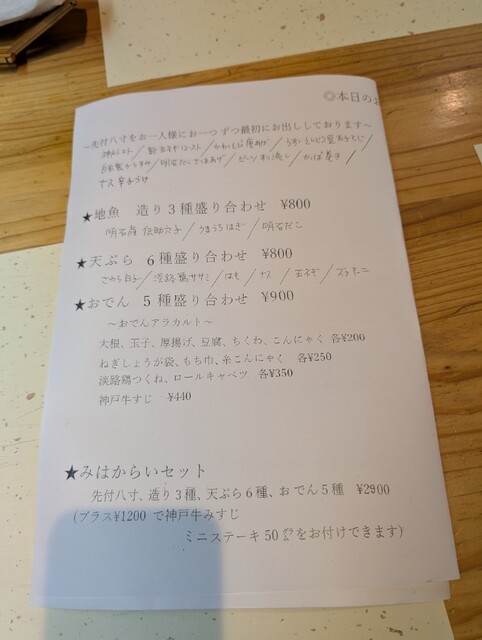 ◎本日のお
~先付八寸をお一人様にお一つずつ最初にお出ししております~
自家製からすみ/明石だこさはあげ/ビーツすり流し/かっぱ巻き/
ナス 辛子づけ
★地魚 造り3種盛り合わせ ¥800
明石産 伝助穴子/うまづらはぎ/明石だこ
★天ぷら 6種盛り合わせ ¥800
さわら白子/淡路鶏ササミ/はも/ナス/玉ネギ/ズッキーニ
★おでん 5種盛り合わせ ¥900
~おでんアラカルト~
大根、玉子、厚揚げ、豆腐、ちくわ、こんにゃく 各¥200
ねぎしょうが袋、もち巾、糸こんにゃく 各¥250
淡路鶏つくね、ロールキャベツ 各¥350
神戸牛すじ ¥440
★みはからいセット
先付八寸、造り3種、天ぷら6種、おでん5種 ¥2900
(プラス¥1200 で神戸牛みすじ
ミニステーキ50㌘をお付けできます)